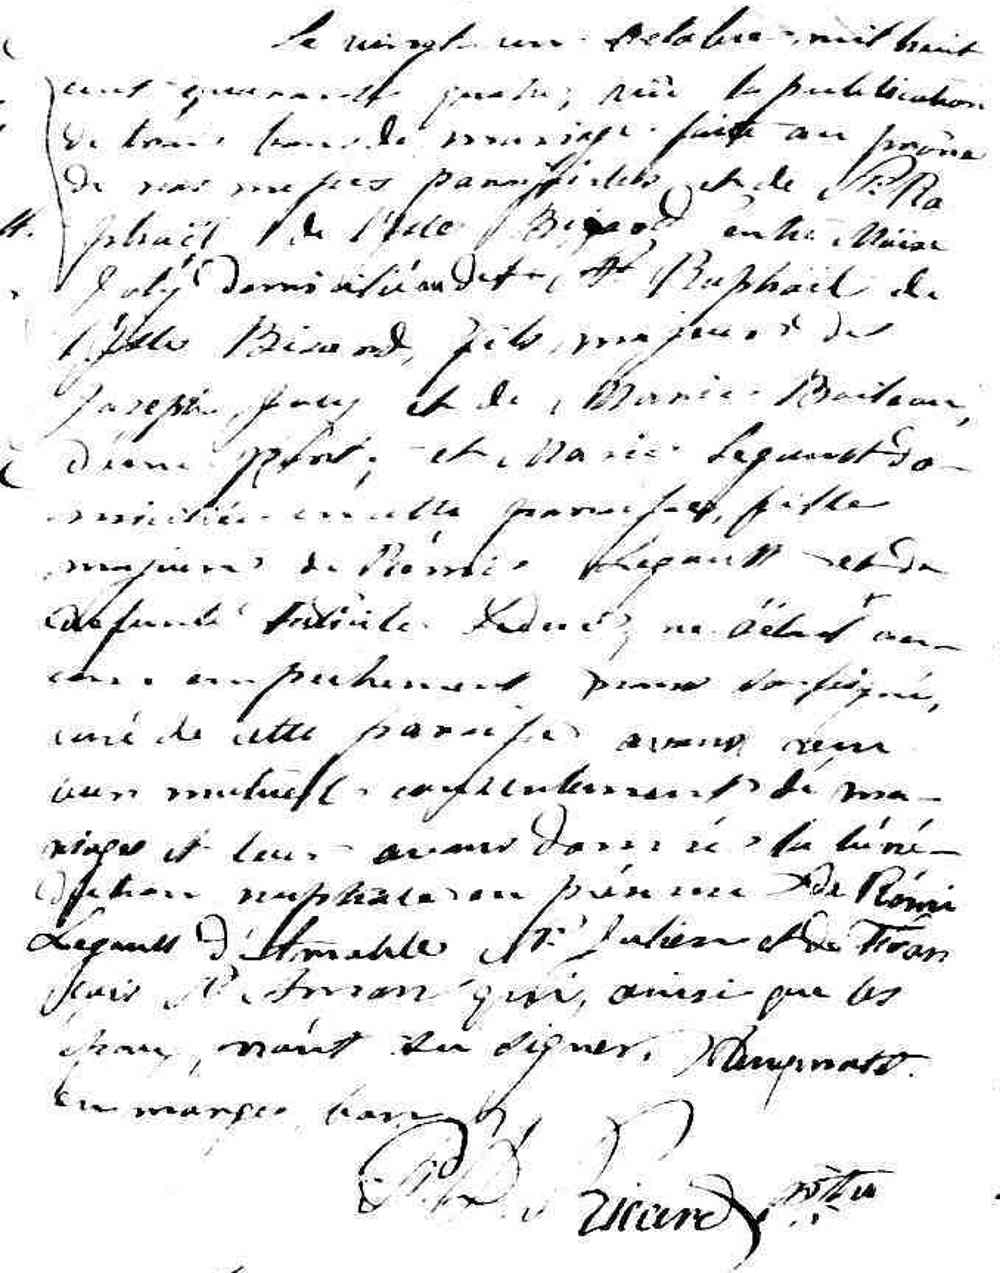 Le vingt un Octobre, mil huit
cent quarante quatre, vûe la publication
de trois bans de mariage faite au prône
de nos messes paroissiales et de St. Ra
phaël de l'Isle Bizard entre Moïse
Joly domicilié audit St. Raphaël de
l'Isle Bizard, fils majeur de
Joseph Joly et de Marie Boileau,
d'une part; et Marie Legault do-
miciliée en cette paroisse, fille
majeure de Rémi Legault et de
défunte Leduc; ne s'étant au-
cun empêchement nous soussigné,
curé de cette paroisse avons reçu
leur mutuel consentement de ma-
riage et leur avons donné la béné-
diction nuptiale en présence de Rémi
Legault d'Amable St. Julien et de Fran
çois qui, ainsi que les
époux, n'ont su signer.
en marge bon
Ricard ptre